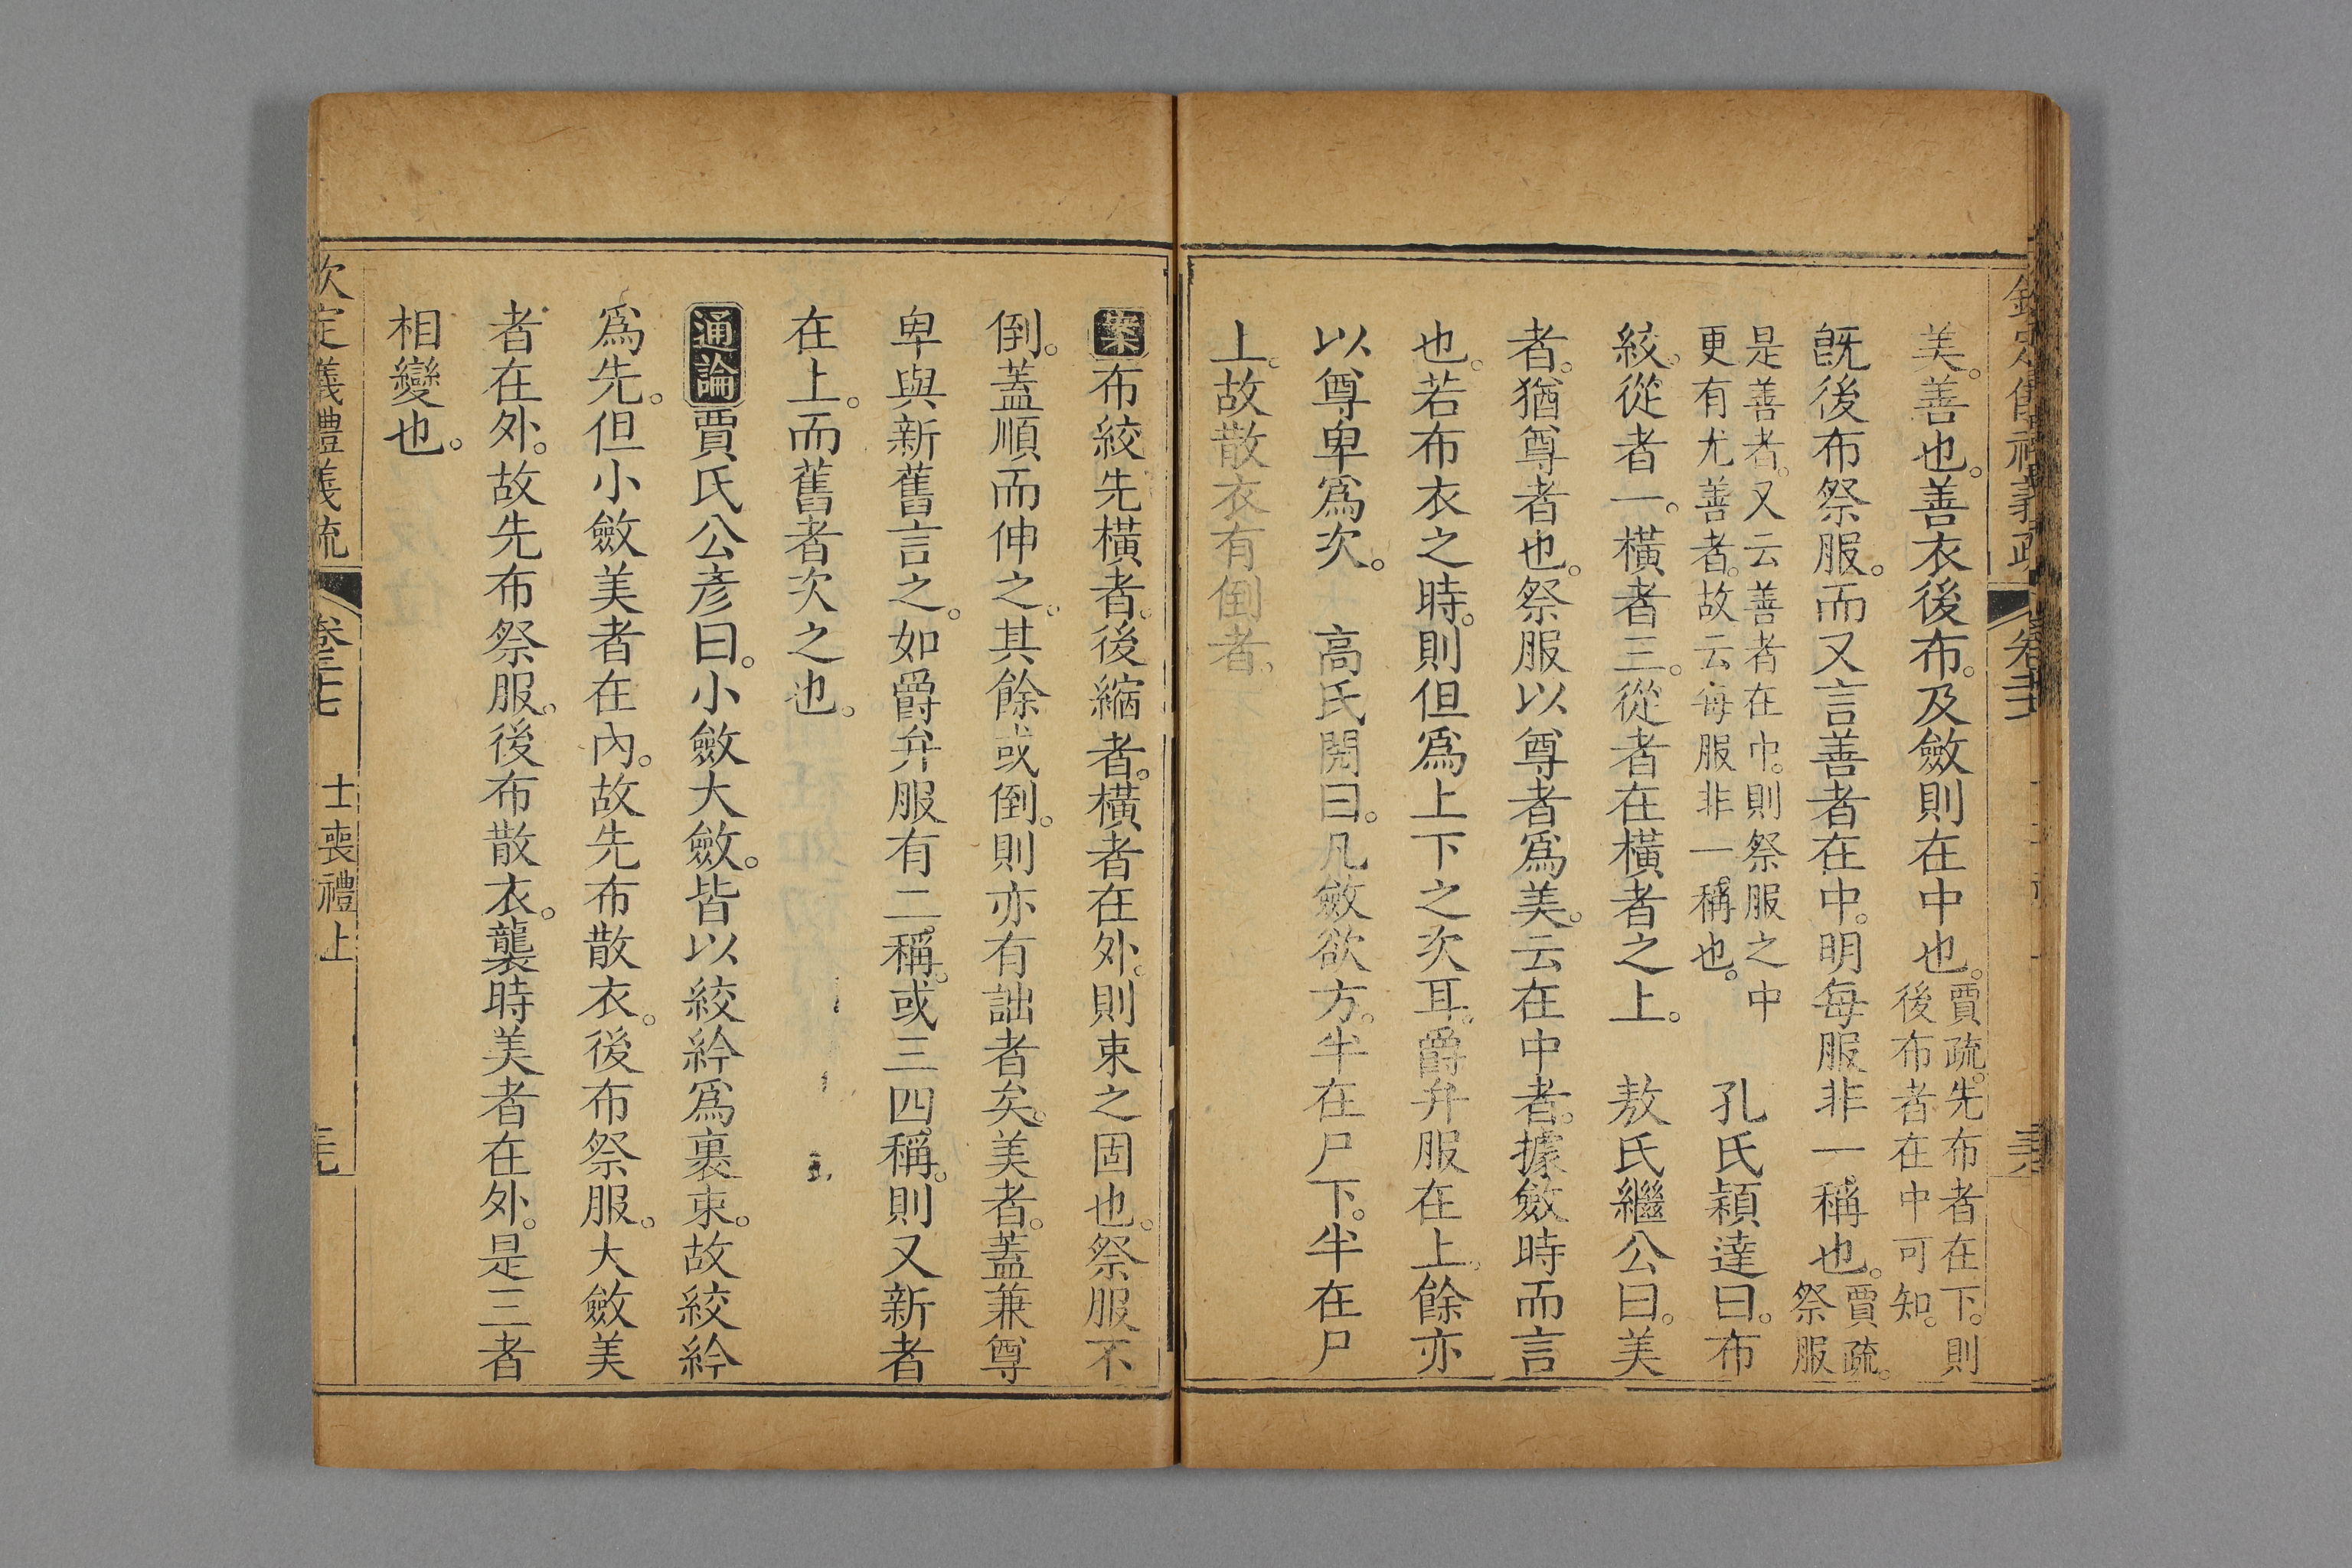 美。善也。善衣後布。及斂則在中也。賈疏。先布者在下。則
後布者在中可知。
旣後布祭服。而又言善者在中。明每服非一稱也。賈疏。
祭服
是善者。又云善者在中。則祭服之中
更有尤善者。故云每服非一稱也。 孔氏穎達曰。布
絞。從者一。橫者三。從者在橫者之上。 敖氏繼公曰。美
者。猶尊者也。祭服以尊者爲美。云在中者。據斂時而言
也。若布衣之時。則但爲上下之次耳。爵弁服在上。餘亦
以尊卑爲次。 高氏閌曰。凡斂欲方。半在尸下。半在尸
上。故散衣有倒者。
案布絞先橫者。後縮者。橫者在外。則束之固也。祭服不
倒。蓋順而伸之。其餘或倒。則亦有詘者矣。美者。蓋兼尊
卑與新舊言之。如爵弁服有二稱。或三四稱。則又新者
在上。而舊者次之也。
通論賈氏公彥曰。小斂大斂。皆以絞紟爲裏束。故絞紟
爲先。但小斂美者在內。故先布散衣。後布祭服。大斂美
者在外。故先布祭服。後布散衣。襲時美者在外。是三者
相變也。
欽定儀禮義疏 卷二十七 士喪禮上